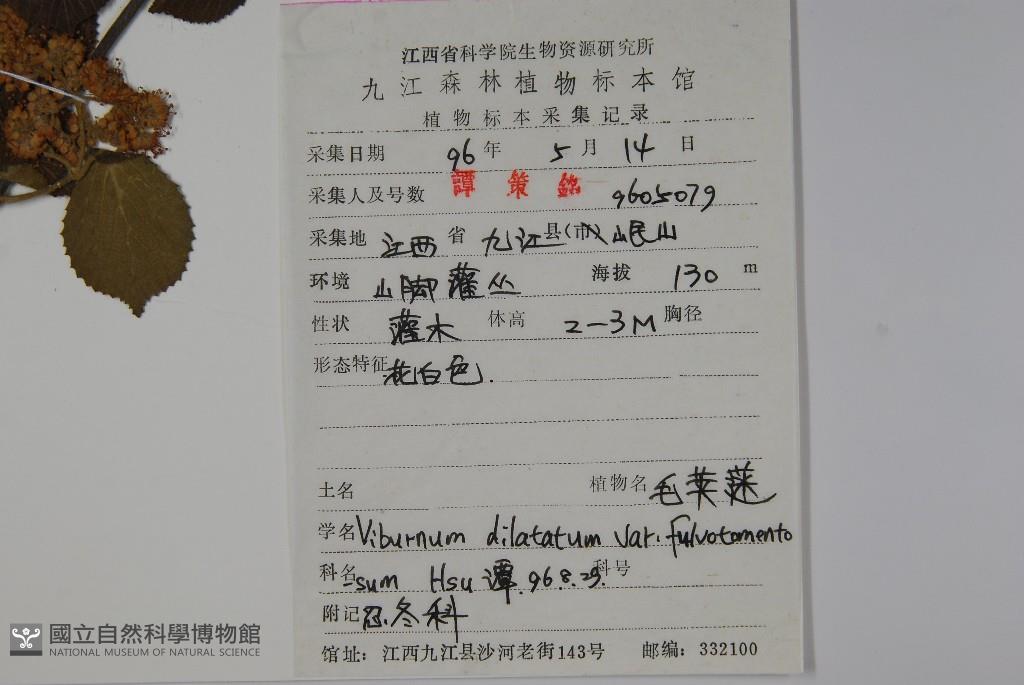 江西省科学院生物资源研究所
九江森林植物标本馆
植物标本采集记录
采集日期 96年 5月 14日
采集人及号数 譚策銘 9605079
采集地 江西省 九江县(市) 岷山
环境 山脚灌丛 海拔 130 m
性状 灌木 体高 2-3M 胸径
形态特征 花白色.
土名 植物名 毛荚蒾
学名 Viburnum dilatatum var. fulvotomento
科名 -sum Hsu 谭. 96.8.29. 科号
附记 忍冬科
馆址: 江西九江县沙河老街143号 邮编: 332100
國立自然科學博物館
NATIONAL MUSEUM OF NATURAL SCIENCE